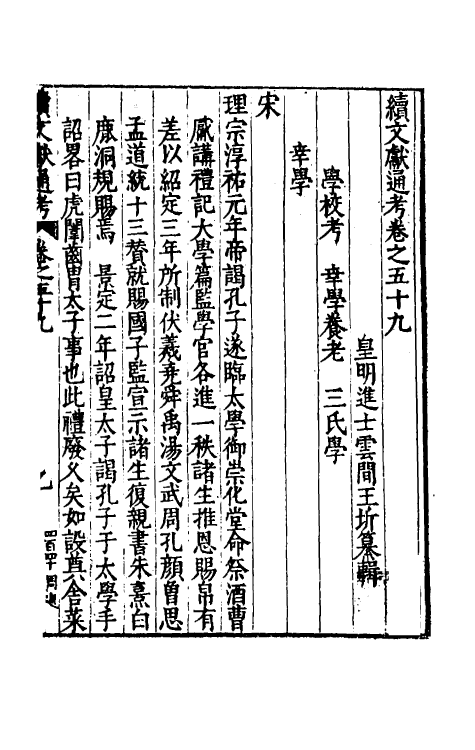 續文獻通考卷之五十九
皇明進士雲間王圻纂輯
學校考　幸學養老　三氏學
幸學
宋
理宗淳祐元年帝謁孔子遂臨太學御崇化堂命祭酒曹
觱講禮記大學篇監學官各進一秩諸生推恩賜帛有
差以紹定三年所制伏羲堯舜禹湯文武周孔顏曾思
孟道統十三贊就賜國子監宣示諸生復親書朱熹白
鹿洞規賜焉　景定二年詔皇太子謁孔子于太學手
詔畧曰虎闈齒胄太子事也此禮廢久矣如設奠舍菜
續文獻通考　卷之五十九